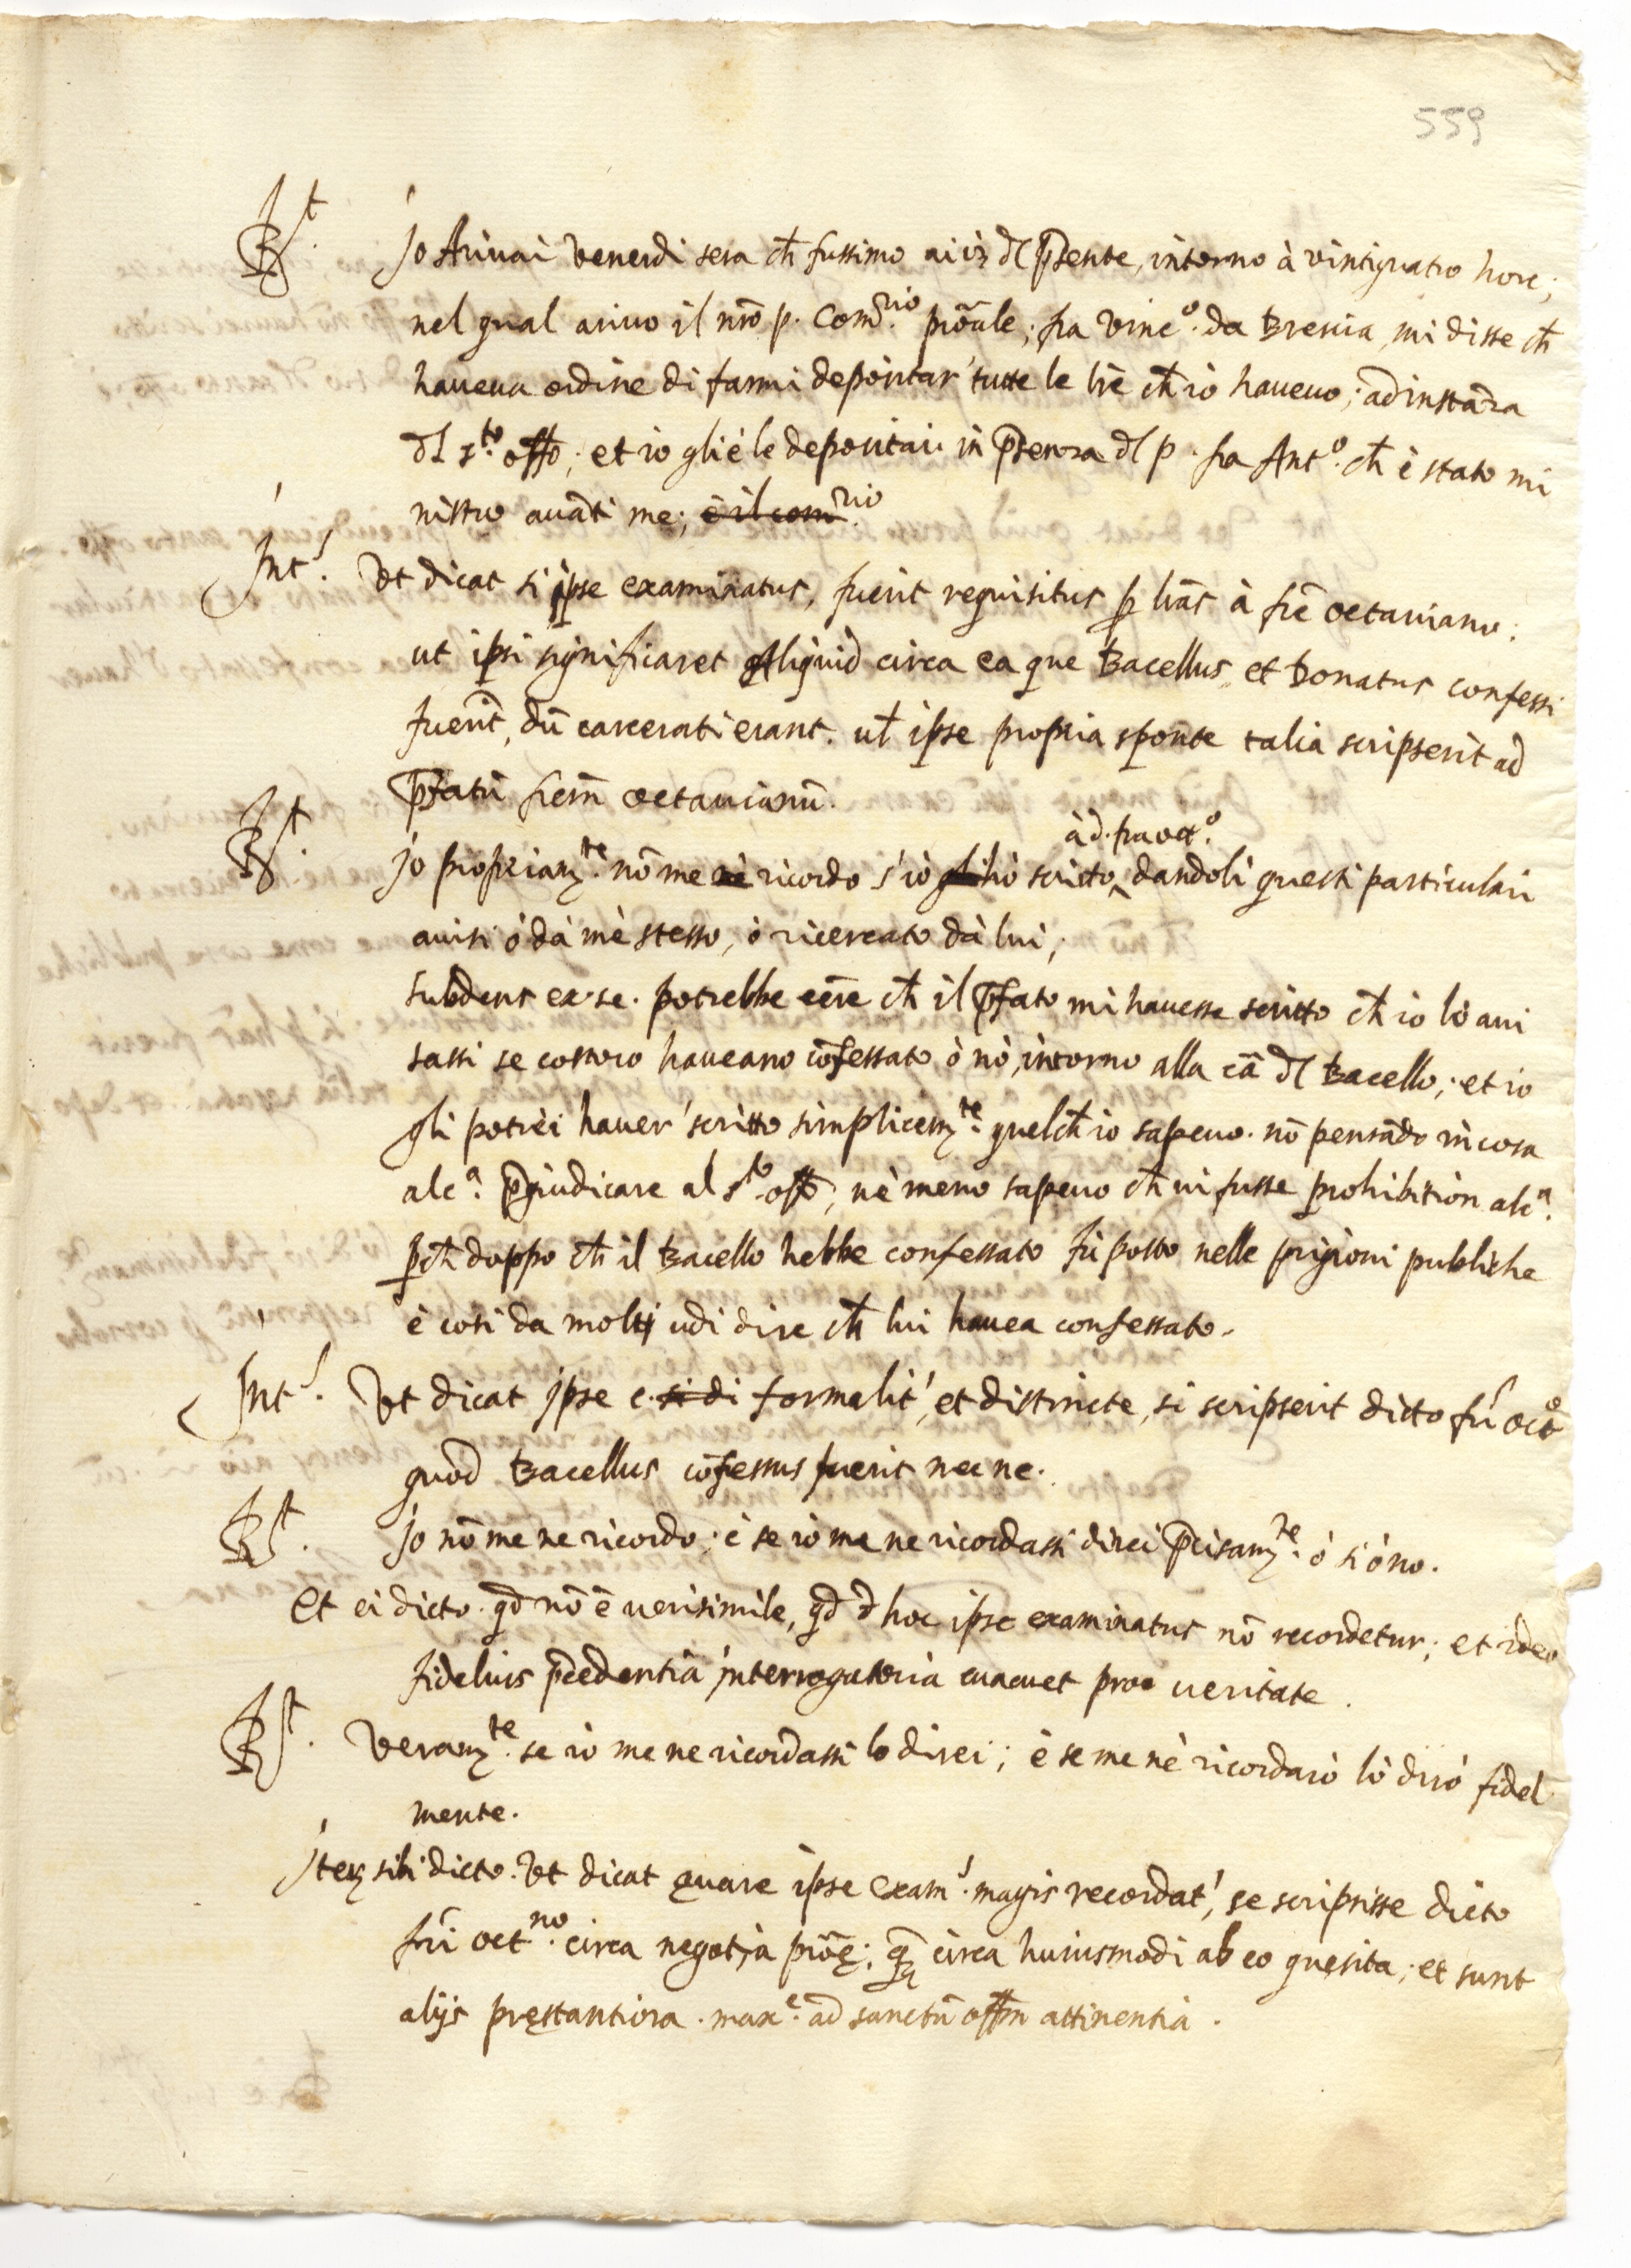 559
R.t Jo Ariuai venerdi sera ch̃ fussimo ai 13 dl p̃sente, intorno à vintiquatro hore;
nel qual ariuo il nr̃o p. Com.rio prõale; fra Vinc.o da Brescia, mi disse ch̃
haueua ordine di farmi depositar' tutte le lrẽ ch̃ io haueuo; ad instãza
dl s.to offo; et io gliè le depositai in p̃senza dl p. fra Ant.o ch̃ è stato mi
nistro auãti me; è il com.rio
Int.s Vt dicat si ipse examinatus, fuerit requisitus p lrãs à frẽ octauiano:
ut ipsi significaret aliquid circa ea que Bacellus et Donatus confessi
fuerĩt, dũ carcerati erant. ul̃ ipse propria sponte talia scripserit ad
p̃fatũ frem̃ octauianũ.
R.t Jo propriam.te nõ me nè ricordo s'io gli hò scritto dandoli questi particulari
à d. fra oct.o
auisi ò dà mè stesso, ò ricercato dà lui;
subdens ex se. potrebbe eẽre ch̃ il p̃fato mi hauesse scritto ch̃ io lo aui
sassi se costoro haueano cõfessato ò nò, intorno alla cã dl Bacello; et io
gli potrei hauer' scritto simplicem.te quelch̃ io sapeuo. nõ pensãdo in cosa
alc.a p̃giudicare al s.to offo; nè meno sapeuo ch̃ ui fusse prohibition alc.a
p̱ch̃ doppo ch̃ il Bacello hebbe confessato fù posto nelle prigioni publiche
è cosi da molti udi dire ch̃ lui hauea confessato.
Int.s Vt dicat ipse e. si di formalit', et distincte, si scripserit dicto frĩ oct.o
quod Bacellus cõfessus fuerit nec ne.
R.t Jo nõ me ne ricordo; è se io me ne ricordassi direi p̃cisam.te ò si ò no.
Et ei dicto. qd̃ nõ ẽ uerisimile, qd̃ d hoc ipse examinatus nõ recordetur; et ideo
fidelius p̃cedentia interrogatoria euacuet pro ueritate.
R.t Veram.te se io me ne ricordassi lo direi; è se me nè ricordarò lò dirò fidel
mente.
Item sibi dicto. Vt dicat quare ipse exam.s magis recordat', se scripsisse dicto
frĩ oct.no circa negotia prõę; q̃ circa huiusmodi ab eo quęsita; et sunt
alijs pręstantiora. max.e ad sanctũ offm̃ attinentia.